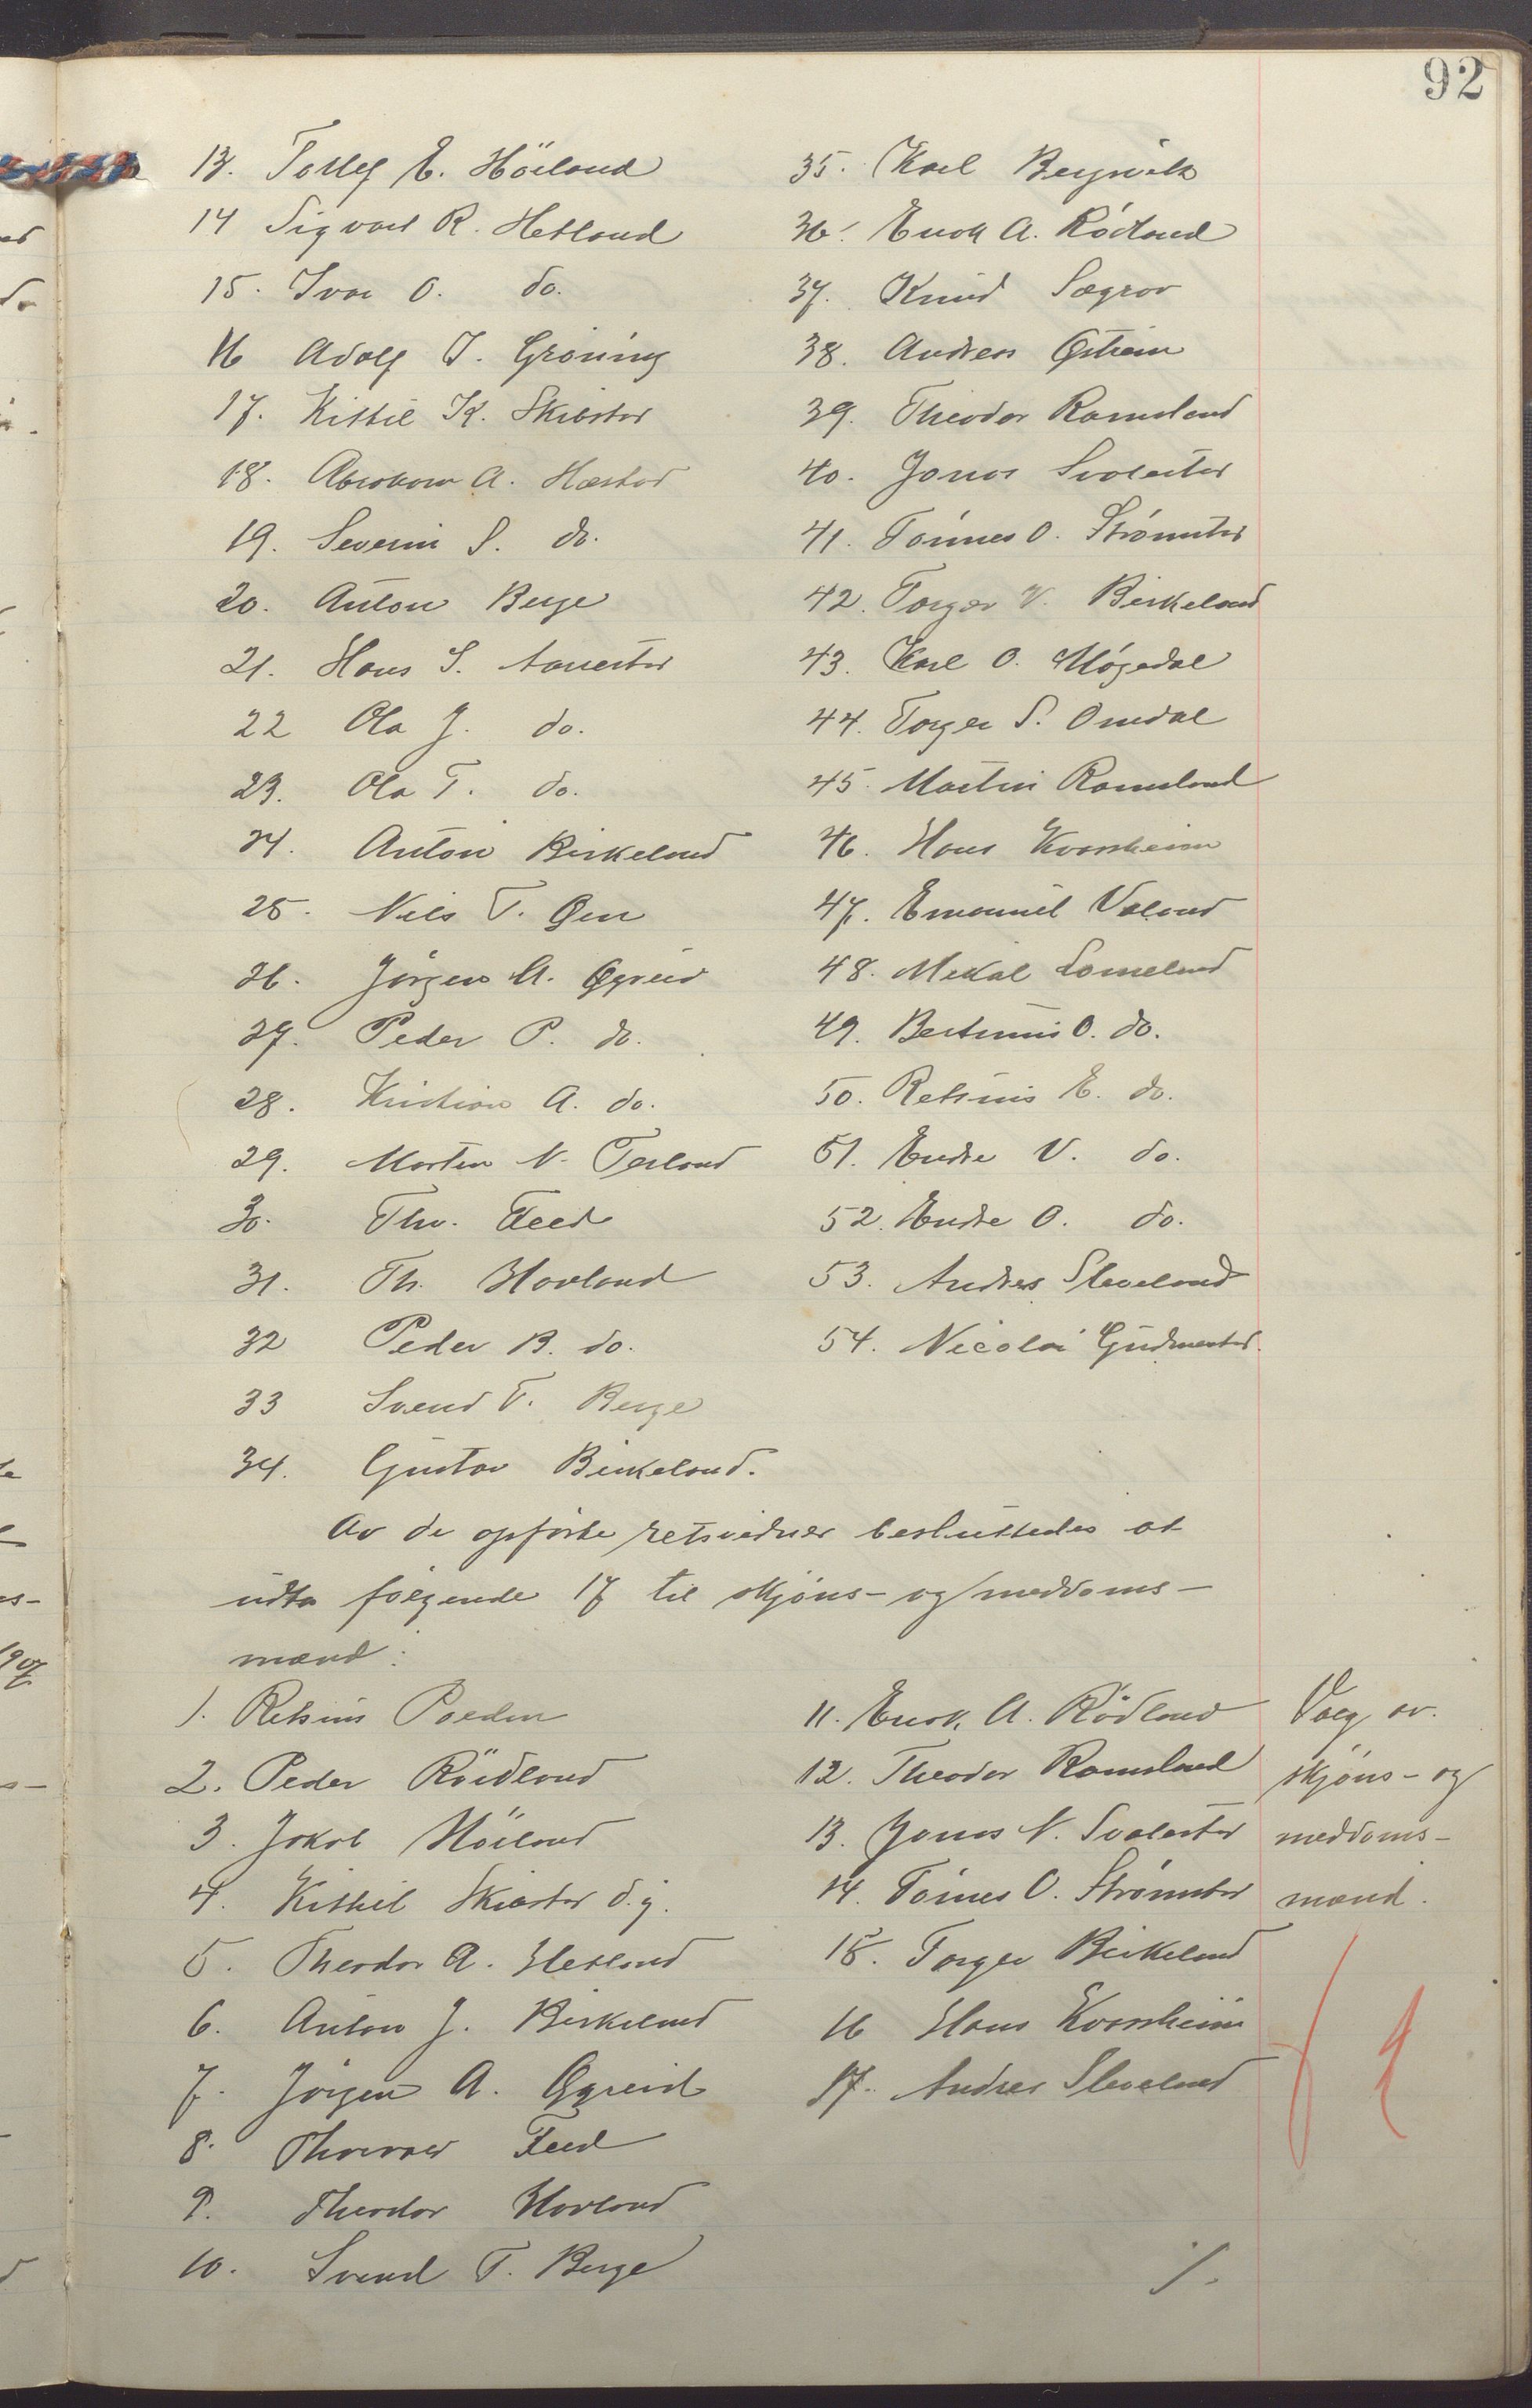 92
13. Tollef E. Höiland
14 Sigvart R. Hetland
15. Ivar O. do.
16 Adolf T. Gröning
17. Kittil K. Skibstad
18. Abraham A. Hæstad
19. Severin S. do.
20. Anton Berge
21. Hans S. Aarrestad
22 Ola J. do.
23. Ola T. do.
24. Anton Birkeland
25. Nils T. Øen
26. Jörgen A. Øgreid
27. Peder P. do.
28. Kristian A. do.
29. Morten N. Terland
30. Thv. Feed
31. Th. Hovland
32 Peder B. do.
33 Svend T. Berge
34. Gustav Birkeland.
35. Karl Bergvik
36. Enok A. Rödland
37. Knud Sægrov
38. Andreas Østreim
39. Theodor Ramsland
40. Jonas Svalestad
41. Tönnes O. Strømstad
42. Torger V. Birkeland
43. Karl O. Møgedal
44. Torger S. Omdal
45. Martin Ramsland
46. Hans Kvassheim
47. Emanuel Valand
48. Mikal Lomeland
49. Bertinius O. do.
50. Retsinius E. do.
51. Endre V. do.
52. Endre O. do.
53. Andres Sleveland
54. Nicolai Gudmestad.
Av de opförte retsvidner besluttedes at
udta følgende 17 til skjöns- og meddoms-
mænd:
1. Retsinius Poeden
2. Peder Röidland
3. Jakob Höiland
4. Kittil Skiastad d.y.
5. Theodor A. Hetland
6. Anton J. Birkeland
7. Jörgen A. Øgreid
8. Thorvald Feed
9. Theodor Hovland
10. Svend T. Berge
11. Enok A. Rödland
12. Theodor Ramsland
13. Jonas N. Svalestad
14. Tönnes O. Strømstad
15. Torger Birkeland
16 Hans Kvassheim
17. Andres Sleveland
Valg av
skjöns- og
meddoms-
mænd.